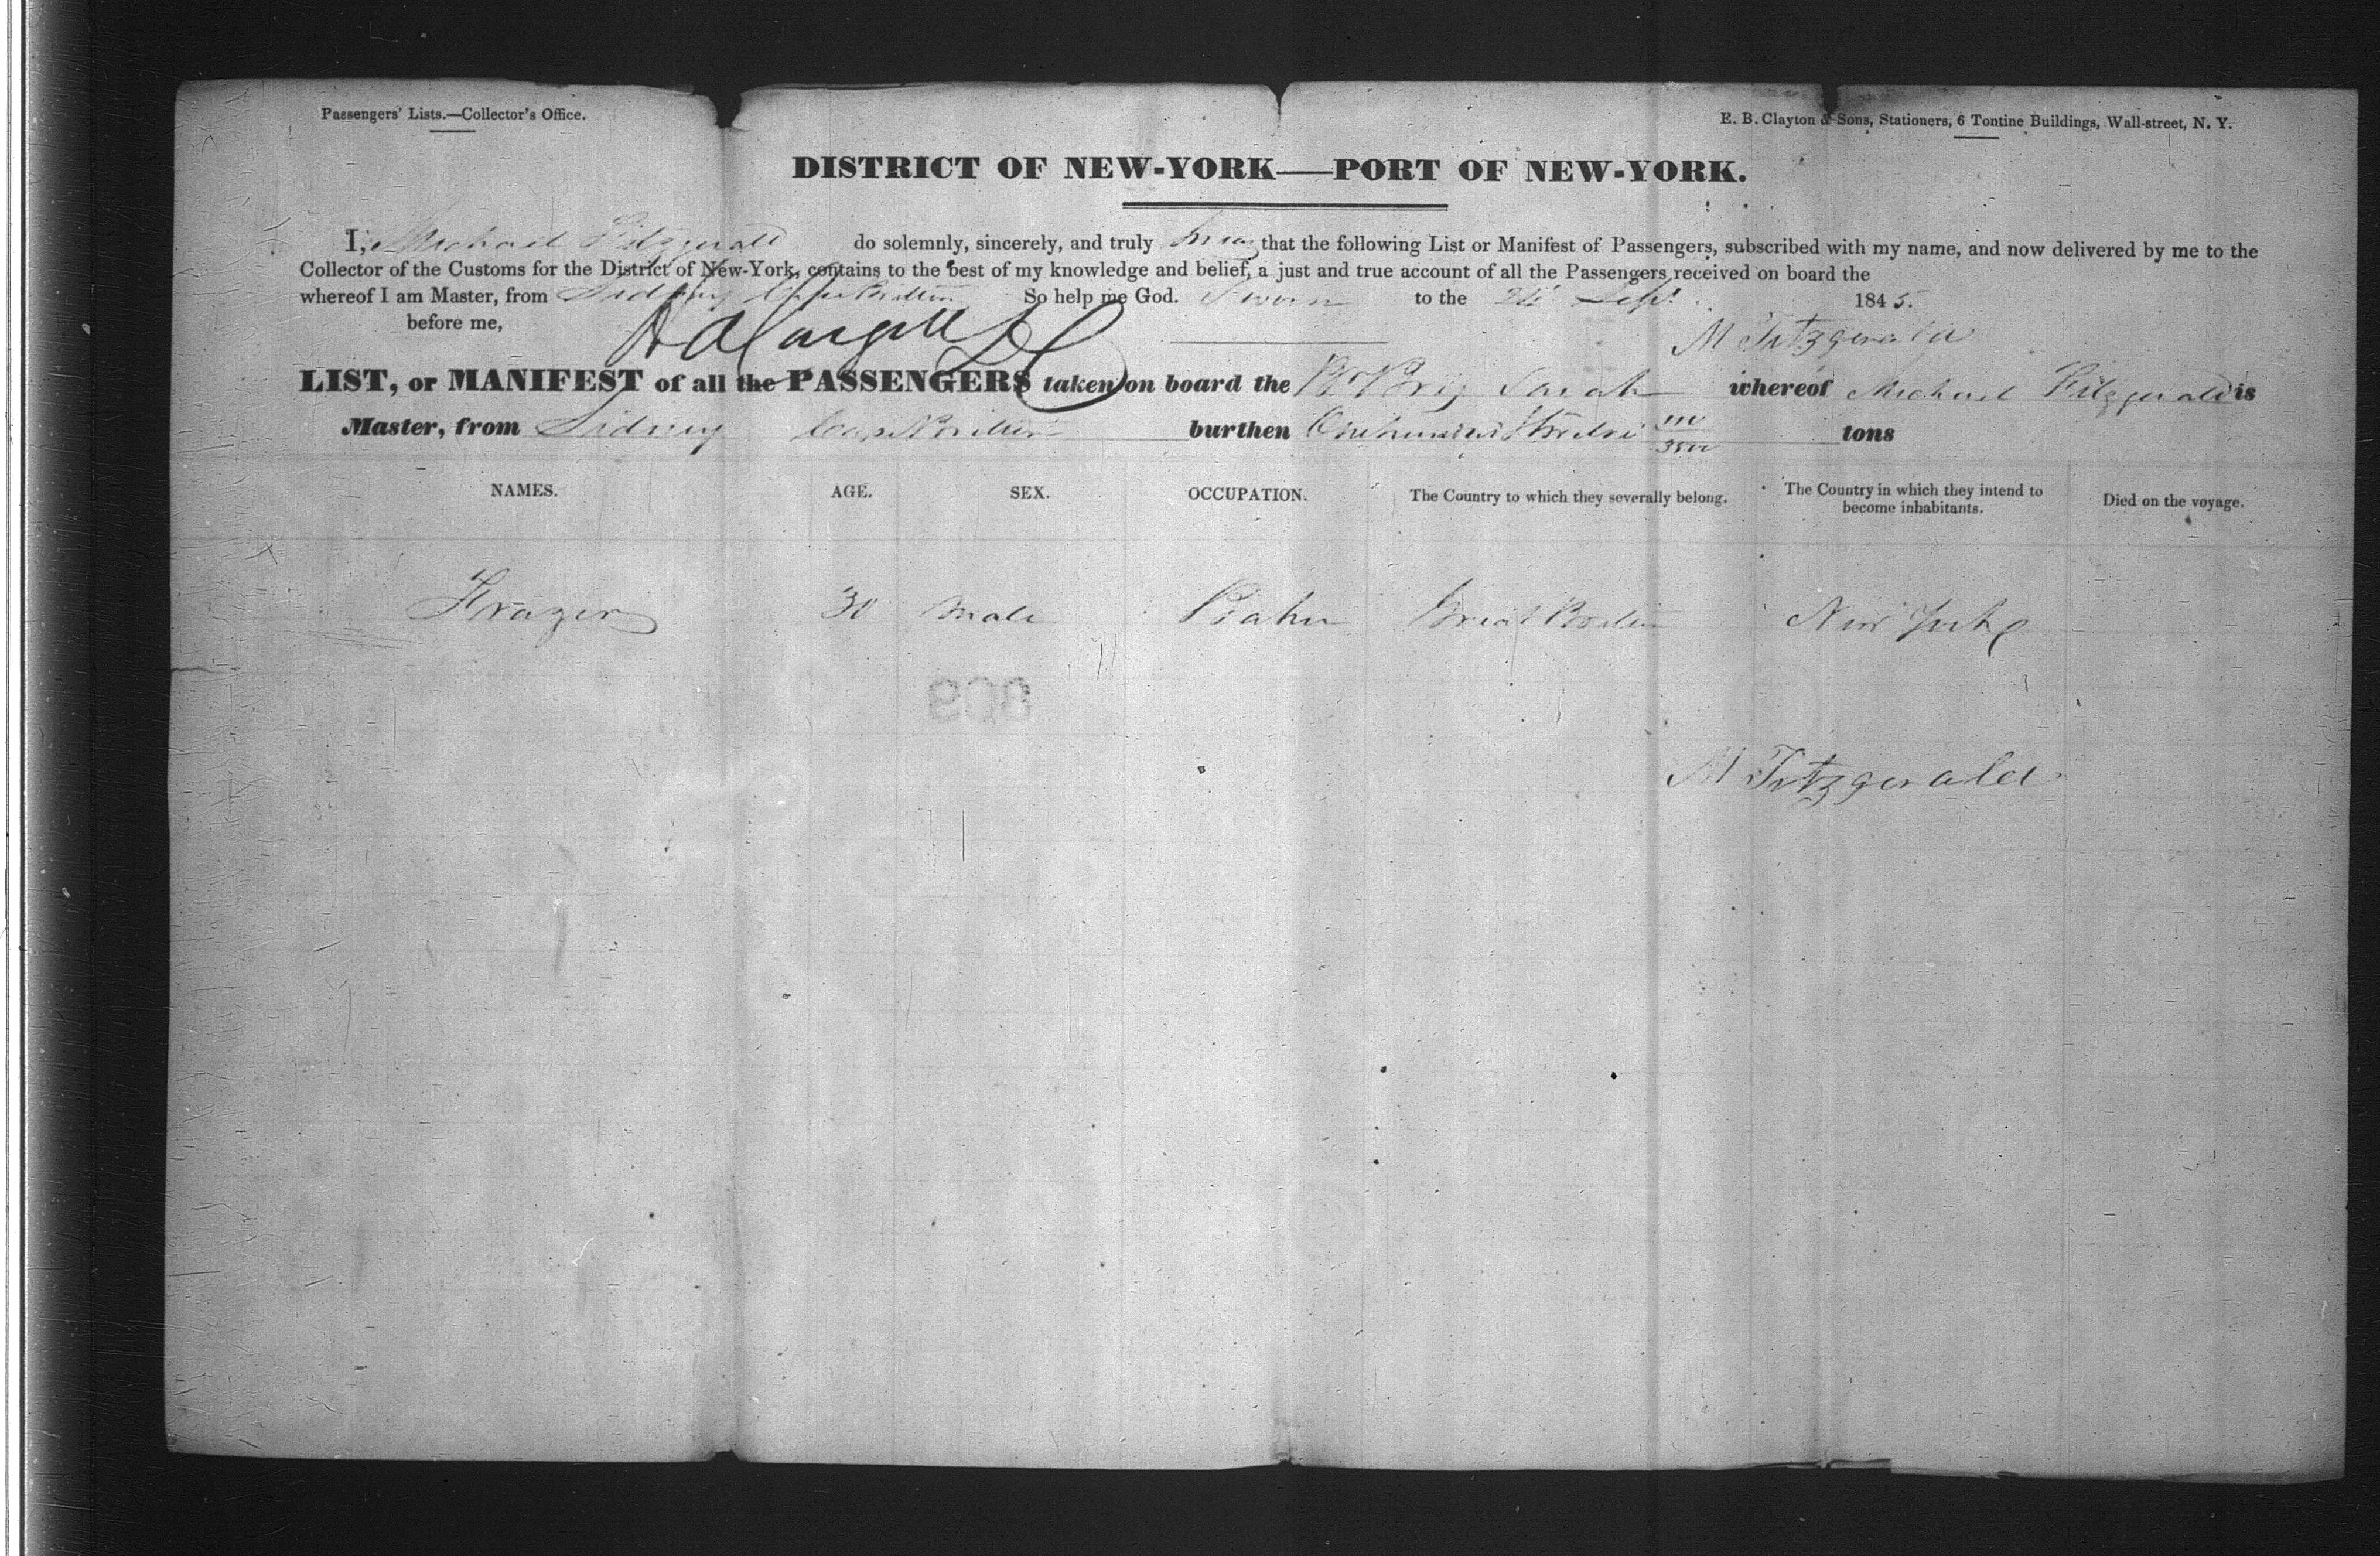 Passengers' Lists.—Collector's Office.
E. B. Clayton & Sons, Stationers, 6 Tontine Buildings, Wall-street, N. Y.
DISTRICT OF NEW-YORK—PORT OF NEW-YORK.
I, Michael Fitzgerald do solemnly, sincerely, and truly swear that the following List or Manifest of Passengers, subscribed with my name, and now delivered by me to the
Collector of the Customs for the District of New-York, contains to the best of my knowledge and belief, a just and true account of all the Passengers received on board the
whereof I am Master, from Sidney Cape Britton So help me God. Sworn to the Sept. 1845.
before me,
M Fitzgerald
LIST, or MANIFEST of all the PASSENGERS taken on board the Br Brig Sarah whereof Michael Fitzgerald is
Master, from Sidney Cape Britton burthen tons
NAMES. AGE. SEX. OCCUPATION. The Country to which they severally belong. The Country in which they intend to become inhabitants. Died on the voyage.
Frazer 30 Male Great Britain New York
M Fitzgerald